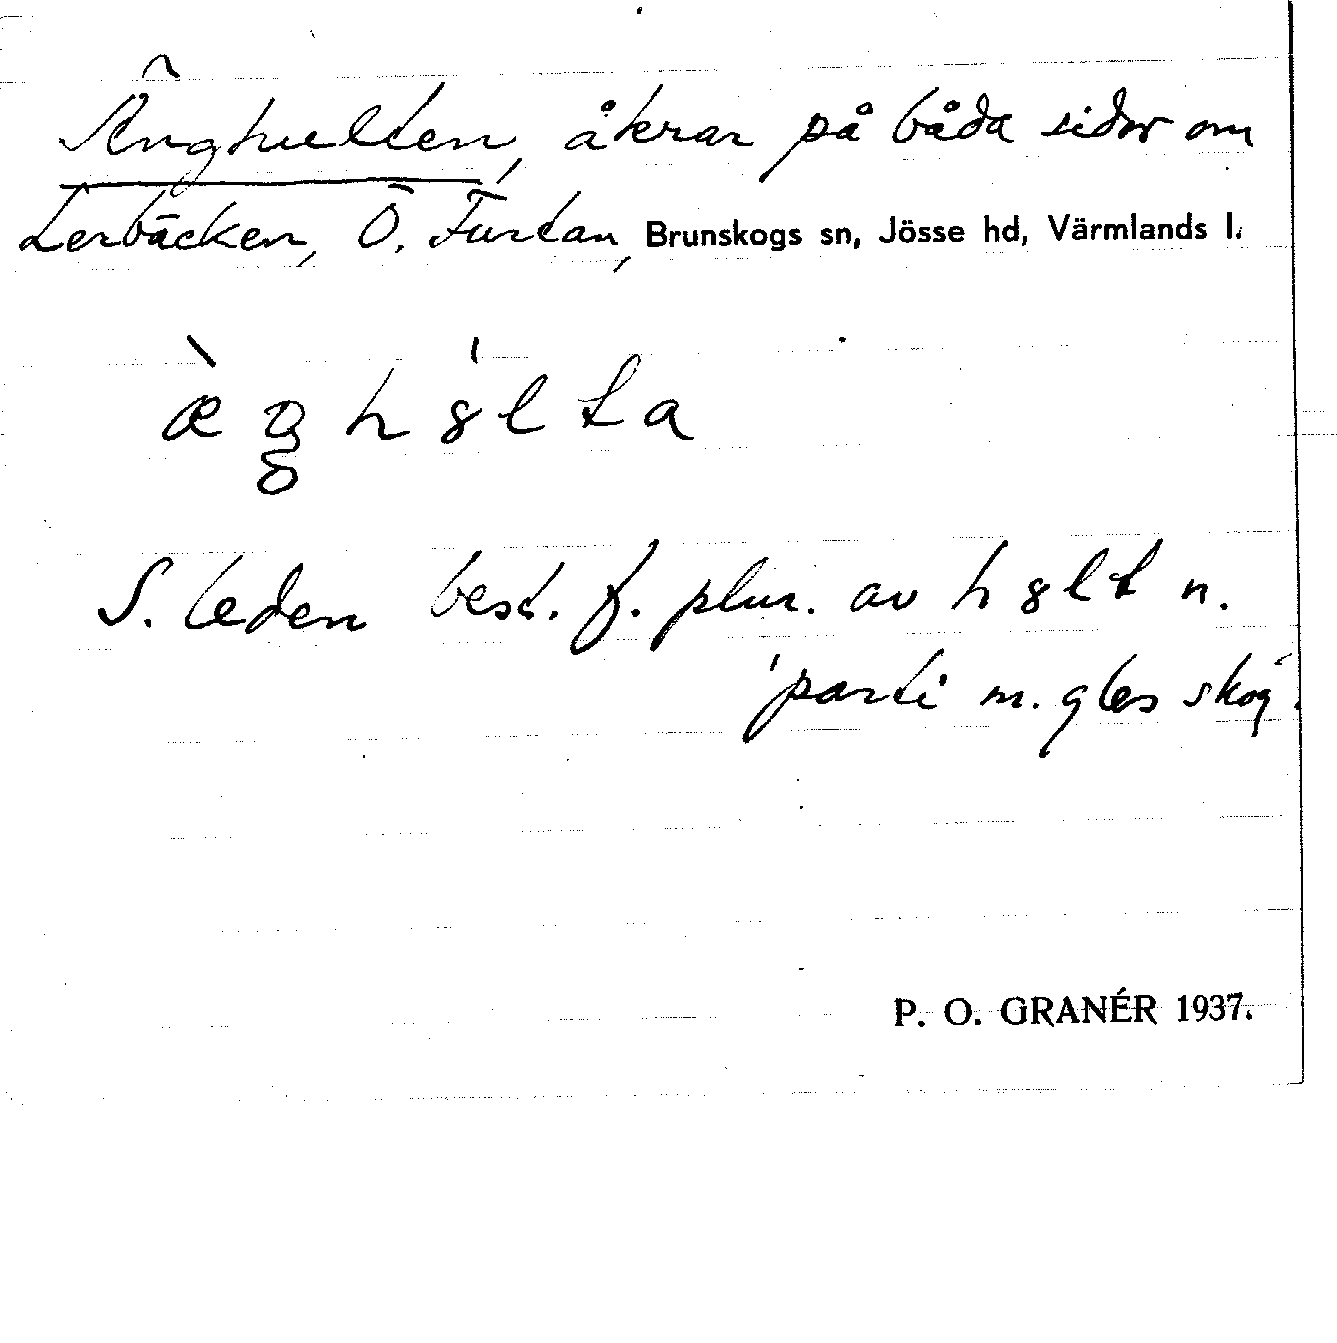 Änghulten, åkrar på båda sidor om
Lerbäcken, Ö. Furtan, Brunskogs sn, Jösse hd, Värmlands l.
S. leden best. f. plur. av h 8 l t n.
'parti m. gles skog'.
P. O. GRANÉR 1937.